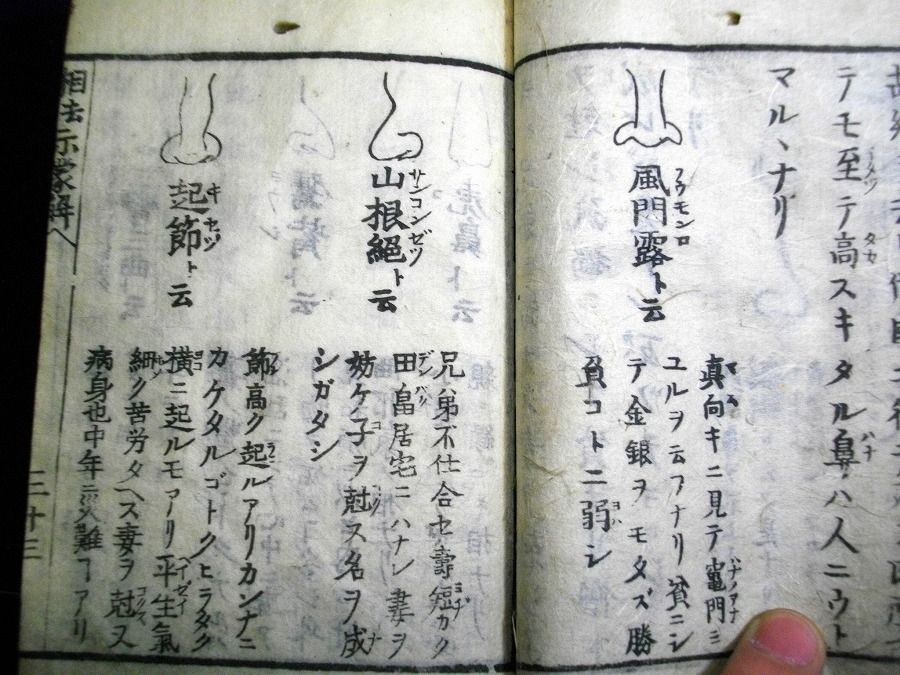 テモ至テ高スキタル鼻ハ人ニウト
マルヽナリ
風門露ト云
フウモンロ
真向キニ見テ竈門ミ
ハナノアナ
ユルヲ云フナリ貧ニシ
テ金銀ヲモタズ勝
負コトニ弱シ
山根絕ト云
サンコンゼツ
兄弟不仕合セ壽短カク
田畠居宅ニハナレ妻ヲ
妨ケ子ヲ尅ス名ヲ成
シガタシ
起節ト云
キセツ
節高ク起ルアリカンナニ
カケタルゴトクヒラタク
横ニ起ルモアリ平生氣
細ク苦労タヘス妻ヲ尅又
病身也中年ニ災難ヿアリ
相法示蒙解
三十三